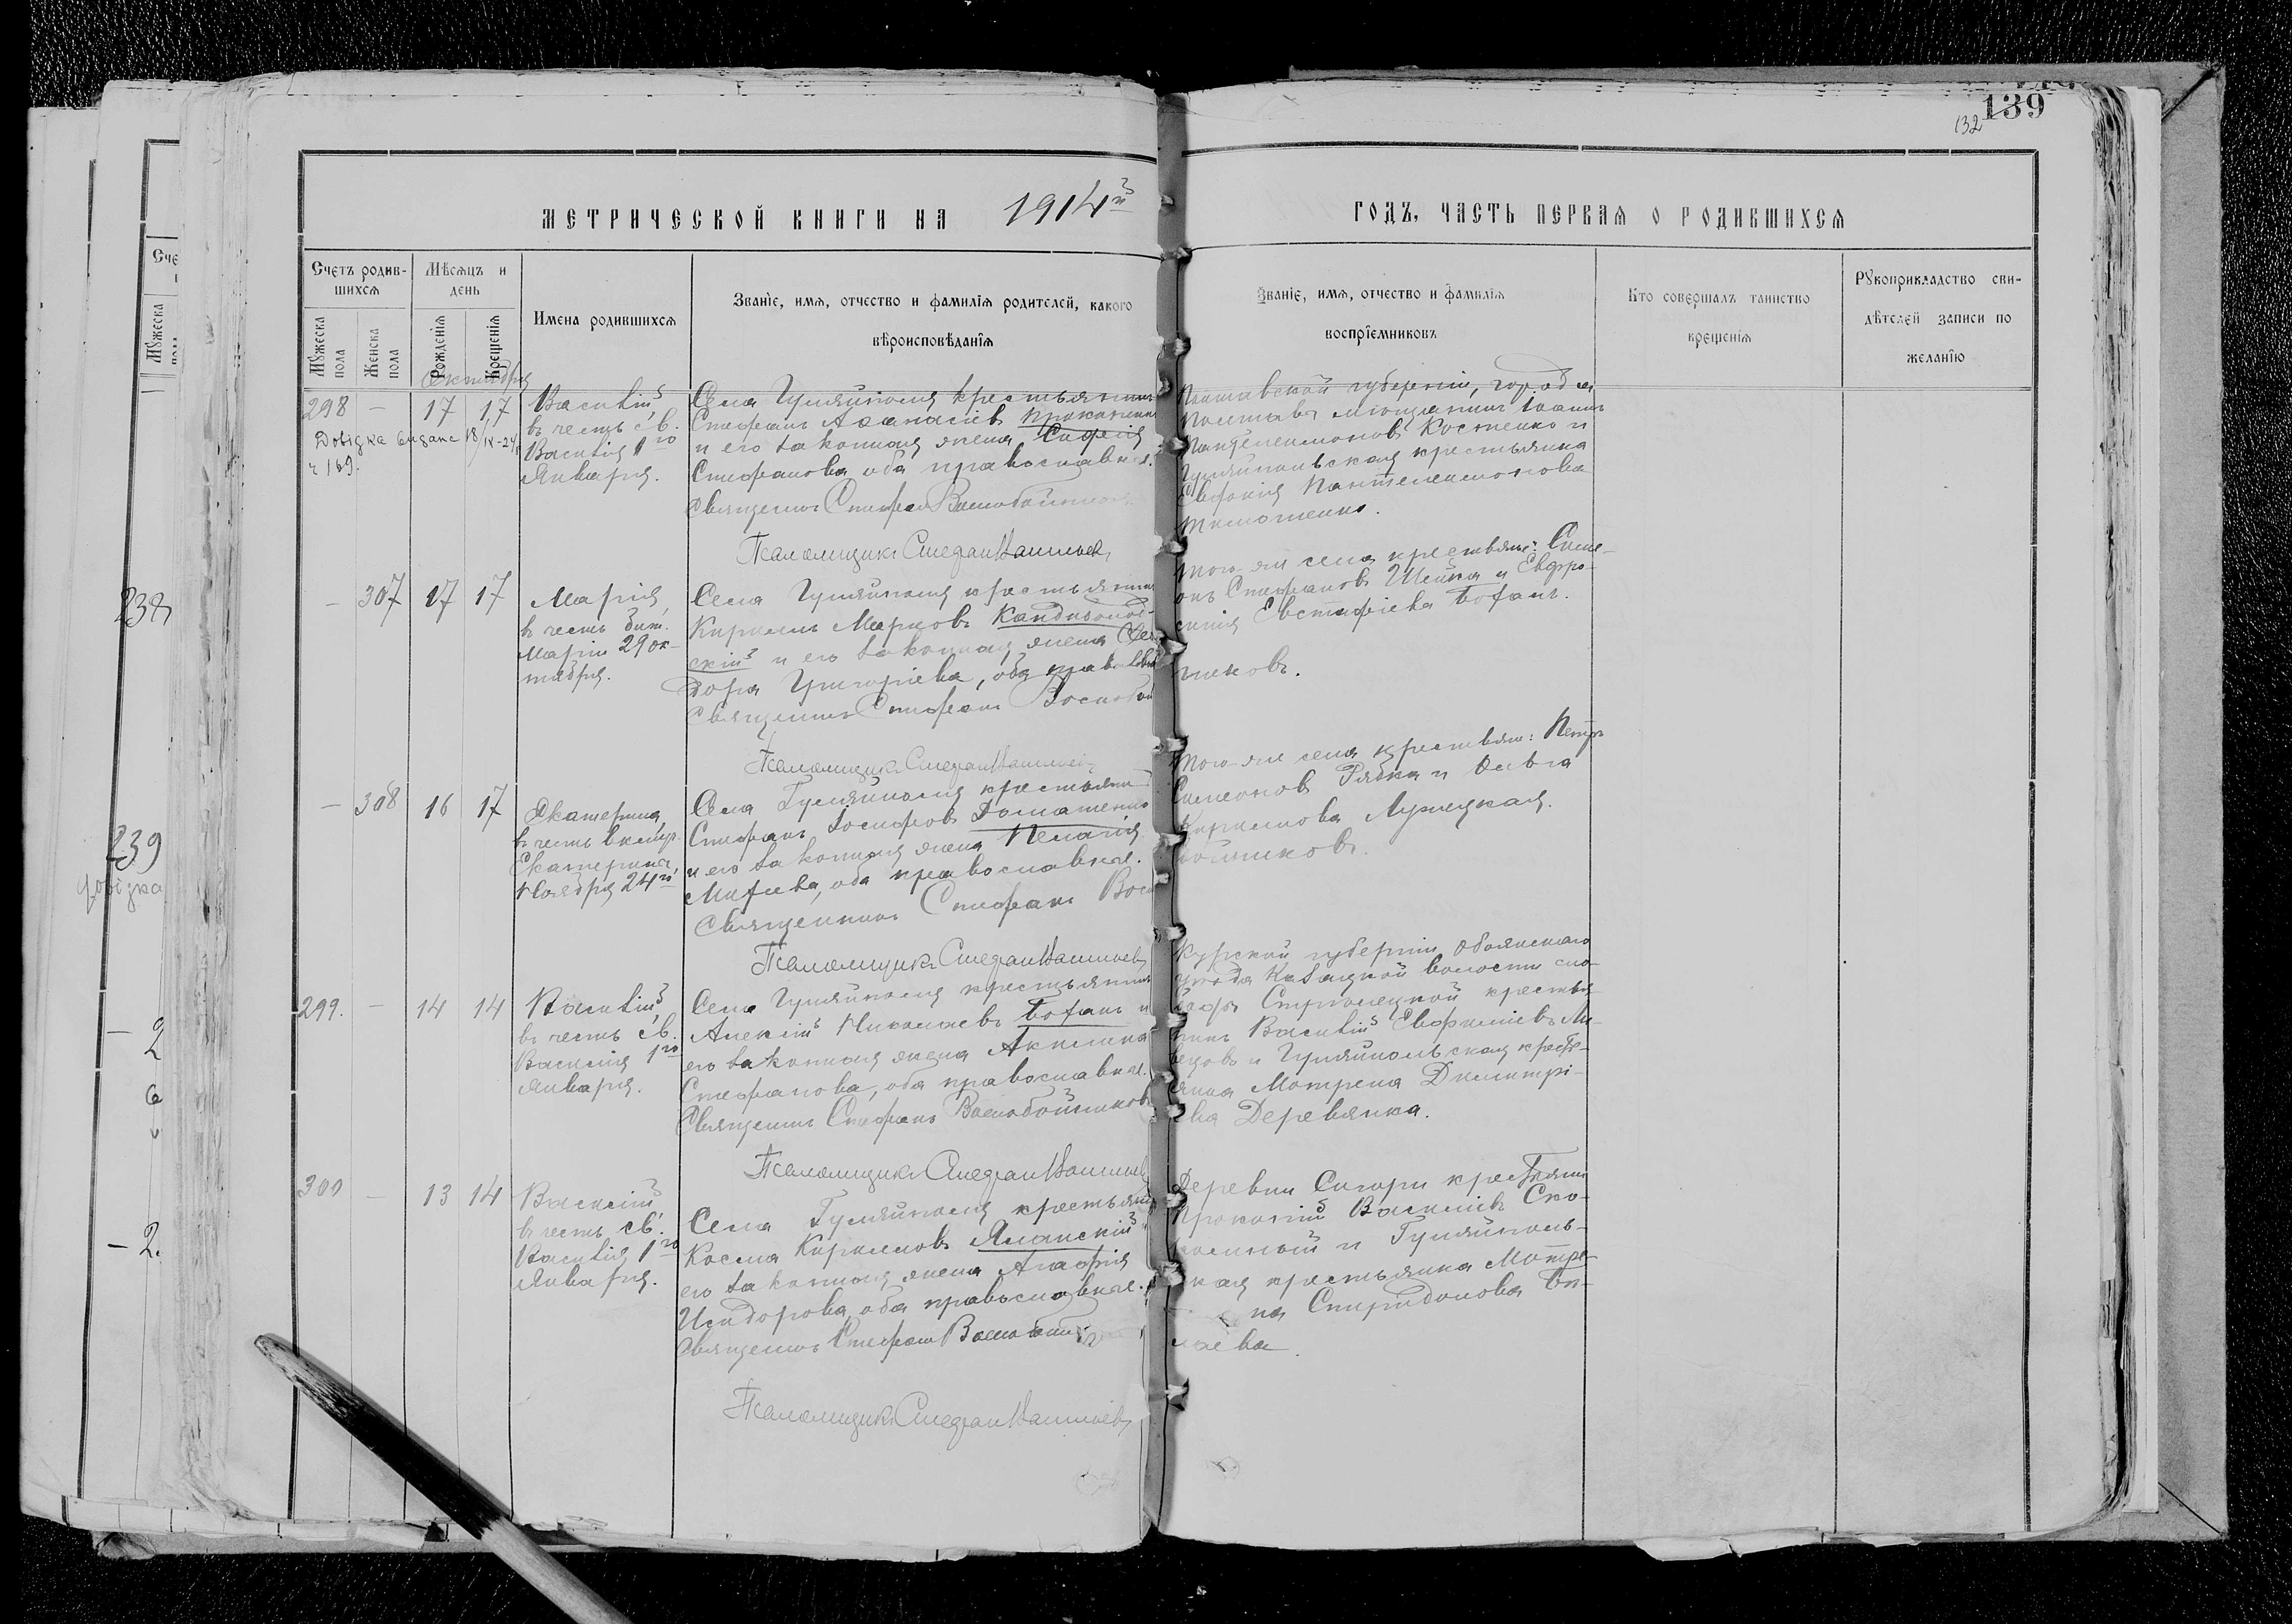 139
132
МЕТРИЧЕСКОЙ КНИГИ НА 1914й
ГОДЪ, ЧАСТЬ ПЕРВАЯ О РОДИВШИХСЯ
Счетъ родив-
шихся
Мужеска
пола
Женска
пола
Мѣсяцъ и
день
Рожденія
Крещенія
Имена родившихся
Званіе, имя, отчество и фамилія родителей, какого
вѣроисповѣданія
Званіе, имя, отчество и фамилія
воспріемниковъ
Кто совершалъ таинство
крещенія
Рукоприкладство сви-
дѣтелей записи по
желанію
Октября
298 – 17 17
Довідка видана 18/IX-24
ч 189.
Василій,
въ честь св.
Василія 1го
Января.
Села Гуляйполя крестьянинъ
Стефанъ Аѳанасіевъ
и его законная жена Софія
Стефанова, оба православные.
Священникъ Стефанъ
Псаломщикъ Стефанъ
Полтавской губерніи, города
Полтавы мѣщанинъ Іоаннъ
Пантелеимоновъ Костенко и
Гуляйпольская крестьянка
Евфимія Пантелеимонова
Тимошенко.
– 307 17 17
Марія,
въ честь
Маріи 29 ок-
тября.
Села Гуляйполя крестьянинъ
Кириллъ Марковъ
скій и его законная жена
дора Григорьева, оба
Священникъ Стефанъ Воскобой
никовъ.
Псаломщикъ Стефанъ
Того-же села крестьяне: Симе-
онъ Стефановъ Шейка и Евфро-
синія Евстафіева Боханъ.
– 308 16 17
Екатерина,
въ честь великмр.
Екатерины
Ноября 24го
Села Гуляйполя крестьянинъ
Стефанъ Іосифовъ Домашенко
и его законная жена Пелагія
Михеева, оба православные.
Священникъ Стефанъ Воско
бойниковъ.
Псаломщикъ Стефанъ
Того-же села крестьяне: Петръ
Симеоновъ Рябка и Ольга
Кириллова Лужецкая.
299. – 14 14
Василій,
въ честь св.
Василія 1го
Января.
Села Гуляйполя крестьянинъ
Алексій Николаевъ Боханъ и
его законная жена Акилина
Стефанова, оба православные.
Священникъ Стефанъ Воскобойниковъ
Псаломщикъ Стефанъ
Курской губерніи Обоянскаго
уѣзда Казацкой волости сло-
боды Стрѣлецкой крестья
нинъ Василій Евфиміевъ
и Гуляйпольская кресть-
янка Мотрена Димитрі-
ева Деревянка.
300 – 13 14
Василій,
въ честь св.
Василія 1го
Января.
Села Гуляйполя крестьянинъ
Косма Кирилловъ Яланскій и
его законная жена Агафія
Исидорова, оба православные.
Священникъ Стефанъ
Псаломщикъ Стефанъ
Деревни крестьянинъ
Прокопій Василіевъ
и Гуляйполь-
ская крестьянка Мотре-
на Спиридонова
238
239
довідка
– 2
6
– 2.